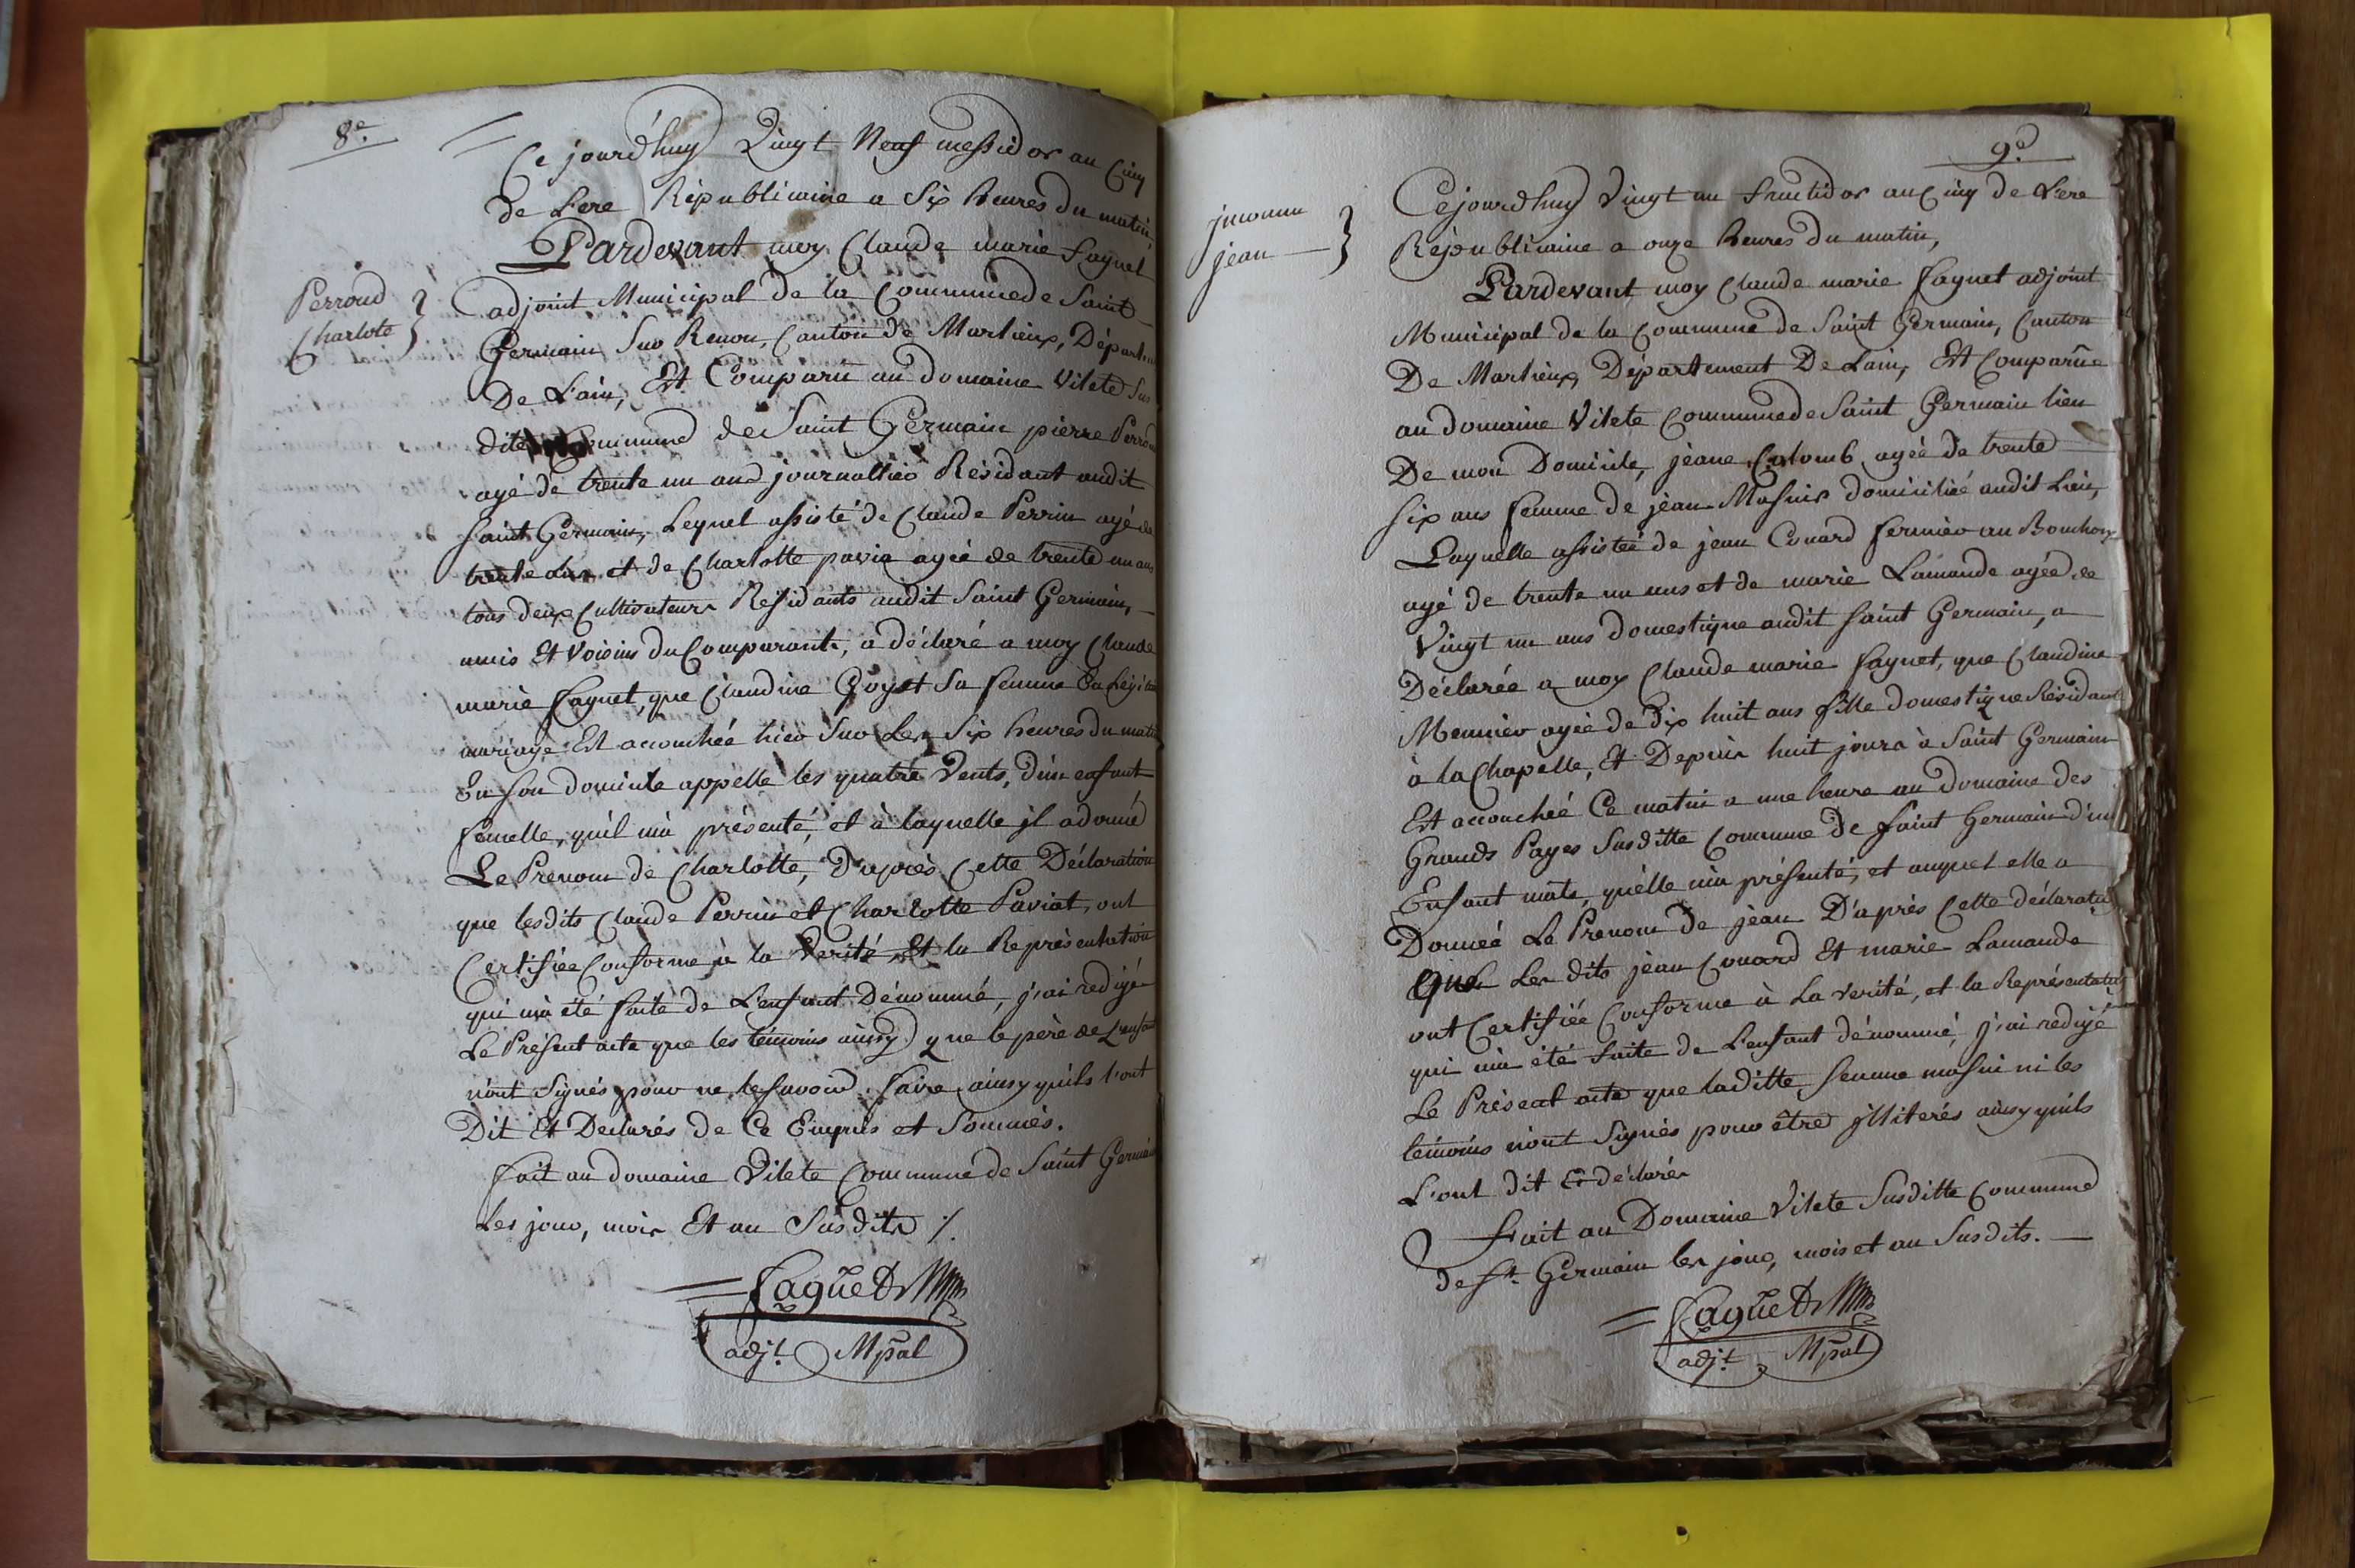 8e.
Ce jourd'huy Vingt Neuf messidor an Cinq
de L'ere Républicaine a Six heures du matin,
Pardevant moy Claude marie faguet
Perroud
Charlote
adjoint Municipal de la Commune de Saint
Germain Sur Renon, Canton de Marlieux, Départ
De L'ain, Est Comparu au domaine Vilete Sus
dite Commune de Saint Germain pierre Perroud
agé de trente un ans journallier Résidant audit
Saint Germain, Lequel assisté de Claude Perrin agé de
trente et de Charlotte pavia agée de trente un ans
tous deux Cultivateurs Residants audit Saint Germain,
amis Et Voisins du Comparant, a déclaré a moy Claude
marie faguet, que Claudine Goyet Sa femme En Legitime
mariage Est accouchée hier Sur Les Six heures du matin
En Son domicile appellé les quatre Vents, d'un enfant
femelle, quil m'a présenté, et à laquelle jl a donné
Le Prenom de Charlotte, D'après Cette Déclaration
que lesdits Claude Perrin et Charlotte Paviat, ont
Certifiée Conforme à la Verité, Et la Représentation
qui m'a été faite de L'enfant Dénommé, j'ai redigé
Le Présent acte que les témoins ainsy que le père de L'enfant
n'ont Signés pour ne le Savoir faire ainsy quils l'ont
Dit Et Declarés de Ce Enquis et Sommés.
fait au domaine Vilete Commune de Saint Germain
Les jour, mois Et an Susdits /.
faguet
adjt. Mpal
9e.
juconnu
jean
Cejourd'huy Vingt un fructidor an Cinq de L'ere
Republicaine a onze heures du matin,
Pardevant moy Claude marie faguet adjoint
Municipal de la Commune de Saint Germain, Canton
De Marlieux, Département De Lain, Est Comparue
au domaine Vilete Commune de Saint Germain lieu
De mon Domicile, jeane Colomb agée de trente
Six ans femme de jean Masuir domiciliée audit Lieu,
Laquelle assistée de jean Couard fermier au Bouchoux
agé de trente un ans et de marie Lamande agée de
Vingt un ans domestique audit Saint Germain, a
Déclarée a moy Claude marie faguet, que Claudine
Meunier agée de Dix huit ans fille domestique Résidant
à la Chapelle, Et Depuis huit jours à Saint Germain
Est accouchée Ce matin a une heure au domaine des
Grands Payes Susditte Commune de Saint Germain d'un
Enfant mâle, quelle m'a présenté, et auquel elle a
Donnée Le Prenom de jean D'après Cette déclaration
Que Les dits jean Couard Et marie Lamande
ont Certifiée Conforme à La verité, et la Représentation
qui m'a été faite de L'enfant dénommé, j'ai redigé
Le Présent acte que laditte femme masui ni les
témoins n'ont Signés pour être jlliterés ainsy quils
L'ont dit Et déclarés
Fait au Domaine Vilete Susditte Commune
de St. Germain les jour, mois et an Susdits.
faguet
adjt. Mpal